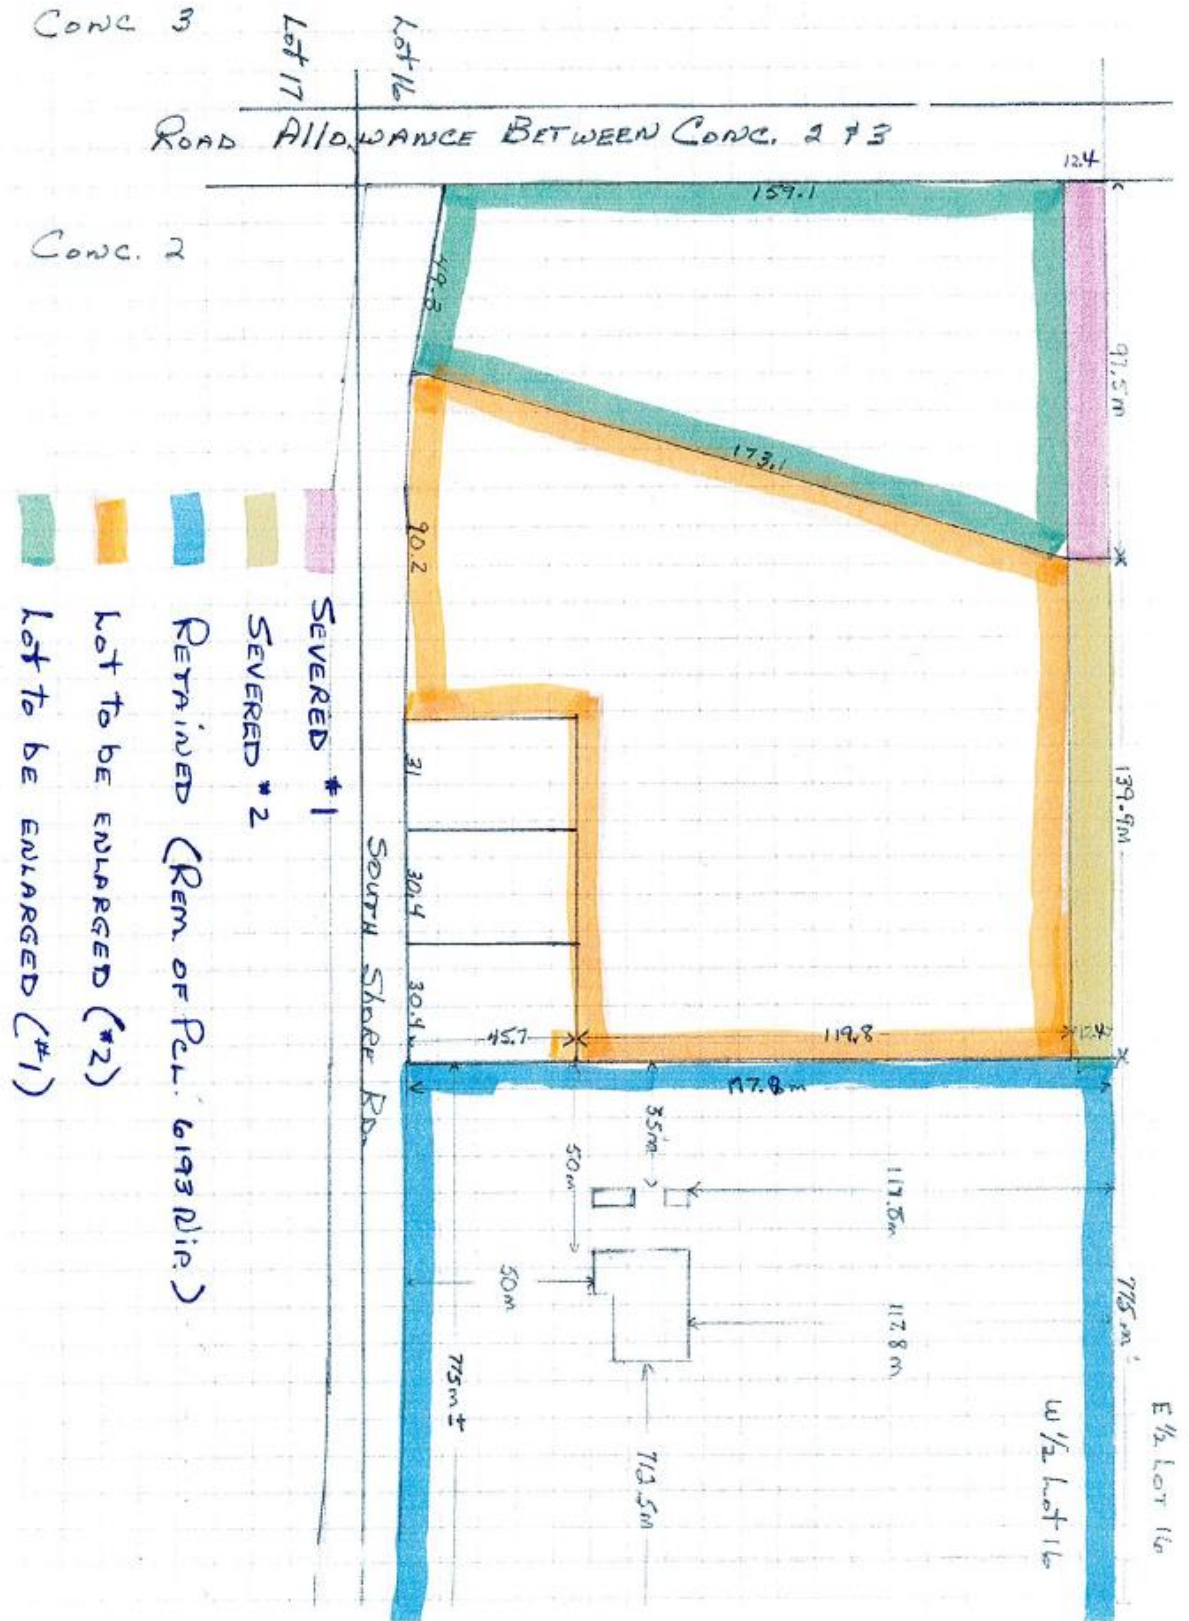 CONC 3
Lot 17
Lot 16
ROAD AllOWANCE BETWEEN CONC. 2 & 3
12.4
159.1
CONC. 2
49.8
97.5m
173.1
90.2
139.9M
31
30.4
30.4
45.7
119.8
12.4
177.8m
SOUTH SHORE RD.
35m
50m
117.8m
50m
117.8m
775m±
712.5m
775m±
W 1/2 Lot 16
E 1/2 LOT 16
SEVERED #1
SEVERED #2
RETAINED (REM. OF PCL. 6193 Nip.)
Lot to be ENLARGED (#2)
Lot to be ENLARGED (#1)